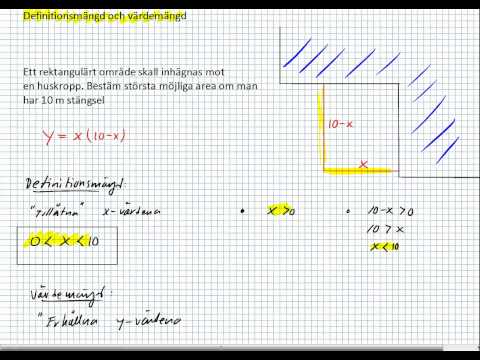 Definitionsmängd och värdemängd
Ett rektangulärt område skall inhägnas mot
en huskropp. Bestäm största möjliga area om man
har 10 m stängsel
y = x (10-x)
10-x
x
Definitionsmängd
"Tillåtna" x-värdena
• x > 0
• 10-x > 0
10 > x
x < 10
0 < x < 10
Värdemängd:
"Erhållna y-värdena